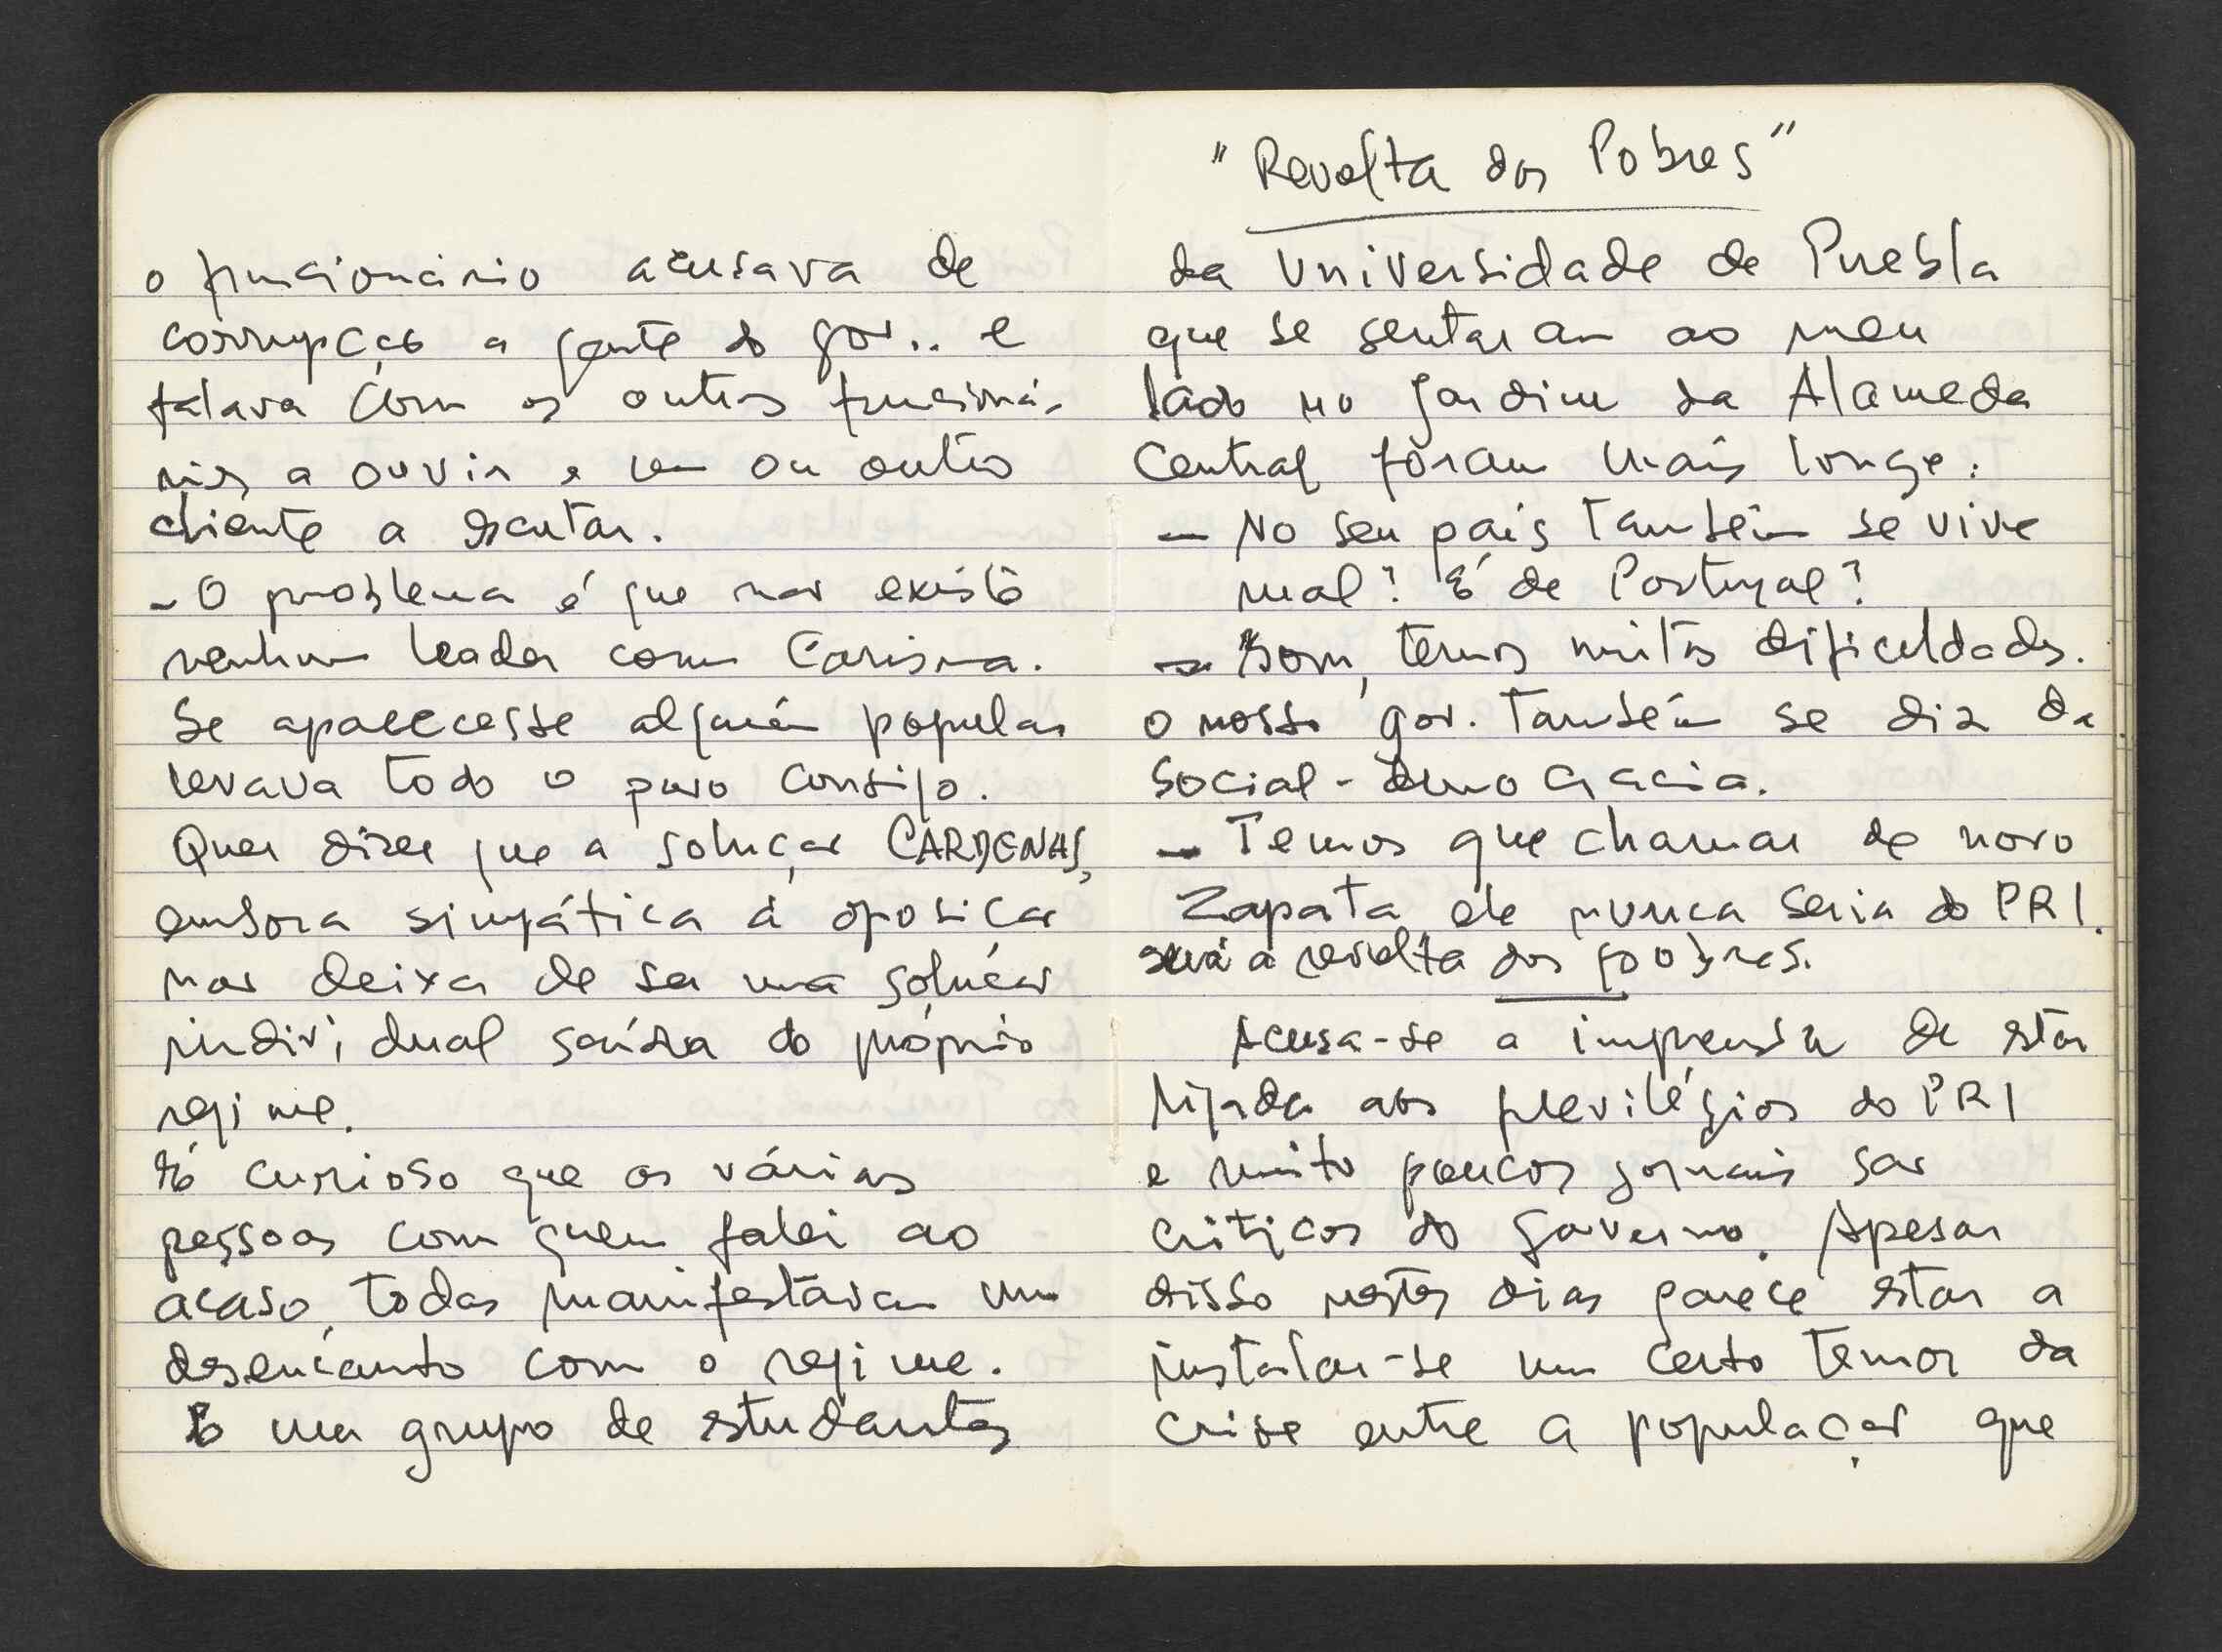 o funcionário acusava de
corrupção a gente do gov.. e
falava com os outros funcioná-
rios a ouvir e um ou outro
cliente a escutar.
- O problema é que não existe
nenhum leader com carisma.
Se aparecesse alguém popular
levava todo o povo consigo.
Quer dizer que a solução CARDENAS,
embora simpática à oposição
não deixa de ser uma solução
individual saída do próprio
regime.
É curioso que as várias
pessoas com quem falei ao
acaso, todas manifestavam um
desencanto com o regime.
E um grupo de estudantes
"Revolta dos Pobres"
da Universidade de Puebla
que se sentaram ao meu
lado no Jardim da Alameda
Central foram mais longe:
- No seu país também se vive
mal? É de Portugal?
- Bom, temos muitas dificuldades.
o nosso gov. também se diz da
Social-democracia.
- Temos que chamar de novo
Zapata ele nunca seria do PRI.
será a revolta dos pobres.
Acusa-se a imprensa de estar
ligada aos previlégios do PRI
e muito poucos jornais são
criticos do governo. Apesar
disso nestes dias parece estar a
instalar-se um certo temor da
crise entre a população que